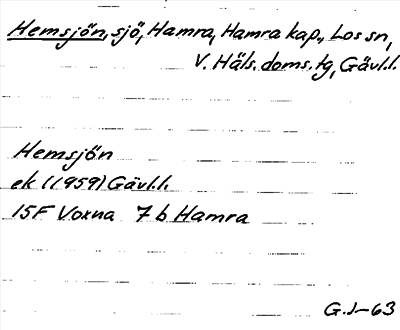 Hemsjön, sjö, Hamra, Hamra kap., Los sn,
V. Häls. doms. tg, Gävl.l.
Hemsjön
ek (1959) Gävl.l.
15F Voxna 7 b Hamra
G.J-63